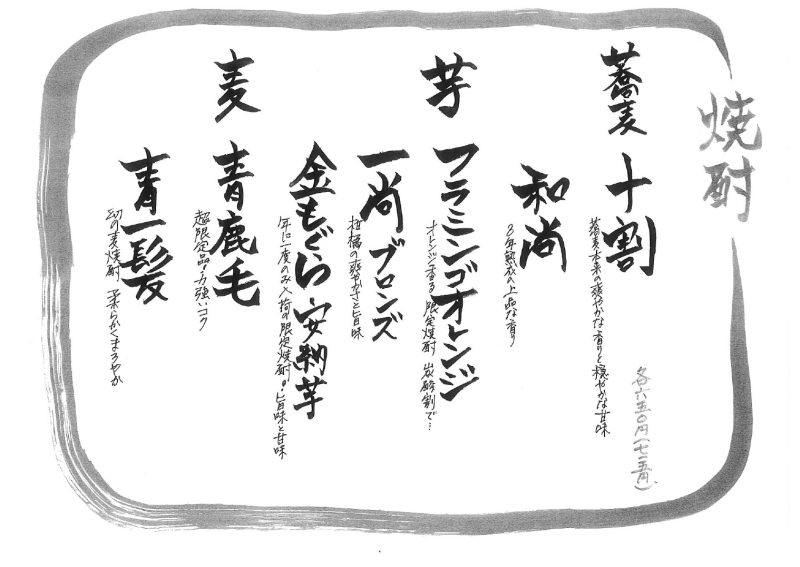 焼酎
各六五〇円(七一五円)
蕎麦 十割
蕎麦本来の爽やかな香りと穏やかな甘味
和尚
3年熟成の上品な香り
芋 フラミンゴオレンジ
オレンジ香る限定焼酎 炭酸割で…
一尚 ブロンズ
柑橘の爽やかさと旨味
金もぐら 安納芋
年に一度のみ入荷の限定焼酎!旨味と甘味
麦 青鹿毛
超限定品!力強いコク
青一髪
幻の麦焼酎 柔らかくまろやか